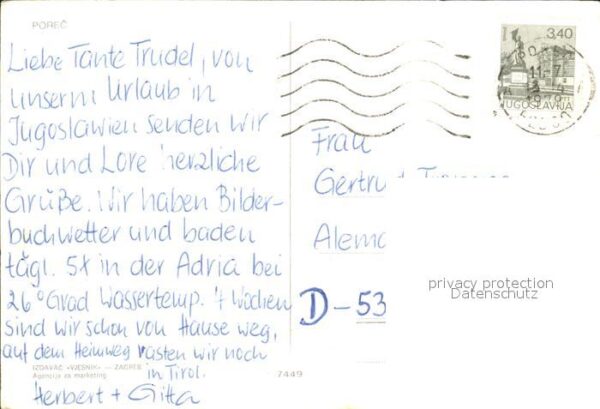 POREČ
Liebe Tante Trudel, von
unserm Urlaub in
Jugoslawien senden wir
Dir und Lore herzliche
Grüße. Wir haben Bilder-
buchwetter und baden
tägl. 5x in der Adria bei
26° Grad Wassertemp. 4 Wochen
sind wir schon von Hause weg,
auf dem Heimweg rasten wir noch
in Tirol.
Herbert + Gitta
IZDAVAČ »VJESNIK« — ZAGREB
Agencija za marketing
7449
3,40
JUGOSLAVIJA
11.-7.
1979
Frau
Gertrud
Alema
D-53
privacy protection
Datenschutz